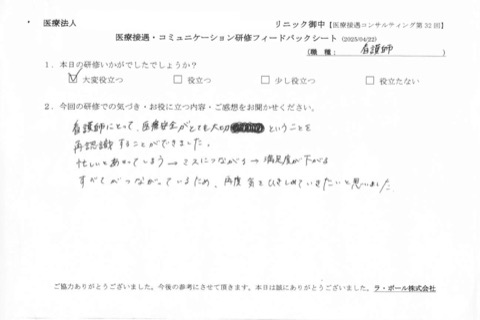 医療法人 リニック御中【医療接遇コンサルティング第32回】
医療接遇・コミュニケーション研修フィードバックシート (2025/04/22)
(職 種： 看護師 )
1．本日の研修いかがでしたでしょうか？
☑ 大変役立つ □ 役立つ □ 少し役立つ □ 役立たない
2．今回の研修での気づき・お役に立つ内容・ご感想をお聞かせください。
看護師にとって、医療安全がとても大切 ということを
再認識することができました。
忙しいとあせってしまう→ミスにつながる→満足度が下がる
すべてがつながっているため、再度気をひきしめていきたいと思いました
ご協力ありがとうございました。今後の参考にさせて頂きます。本日は誠にありがとうございました。ラ・ポール株式会社